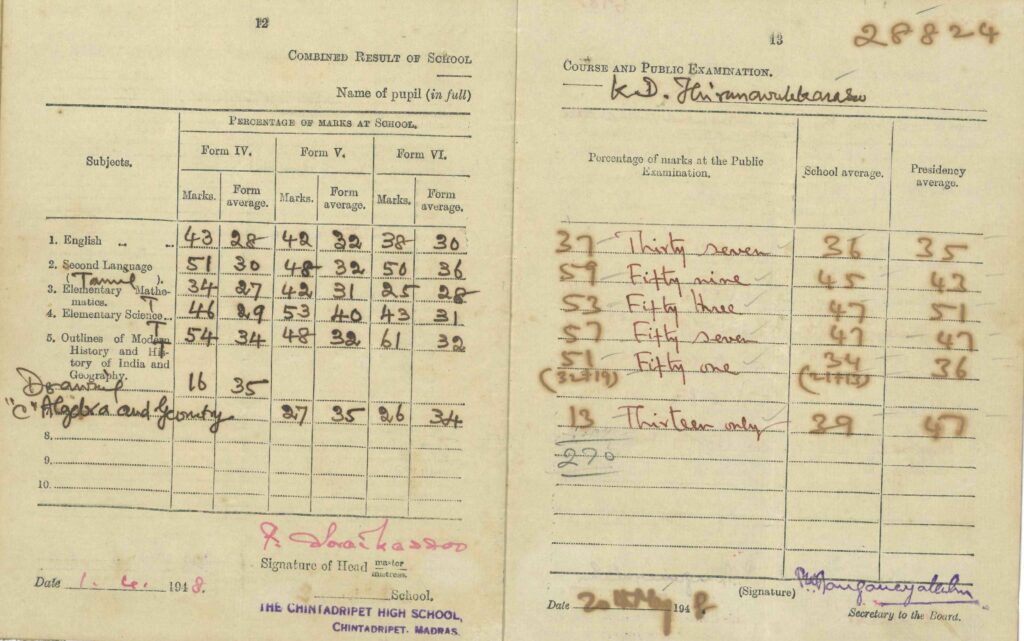 12
COMBINED RESULT OF SCHOOL
Name of pupil (in full)
PERCENTAGE OF MARKS AT SCHOOL.
Subjects. Form IV. Form V. Form VI.
Marks. Form average. Marks. Form average. Marks. Form average.
1. English .. .. 43 28 42 32 38 30
2. Second Language 51 30 48 32 50 36
(Tamil).
3. Elementary Mathe- 34 27 42 31 25 28
matics. T
4. Elementary Science.. 46 29 53 40 43 31
T
5. Outlines of Modern 54 34 48 32 61 32
History and His-
tory of India and
Geography.
Drawing 16 35
"C" Algebra and Geometry 27 35 26 34
8.
9.
10.
Signature of Head master
mistress.
Date 1. 4. 1948.
School.
THE CHINTADRIPET HIGH SCHOOL,
CHINTADRIPET. MADRAS.
13
28824
COURSE AND PUBLIC EXAMINATION.
K.D. Thirunavukkarasu
Percentage of marks at the Public Examination. School average. Presidency average.
37 Thirty seven 36 35
59 Fifty nine 45 43
53 Fifty three 47 51
57 Fifty seven 47 47
51 Fifty one 34 36
(32+19) (21+13)
13 Thirteen only 39 47
270
(Signature)
Date 20 MAY 1948
Secretary to the Board.